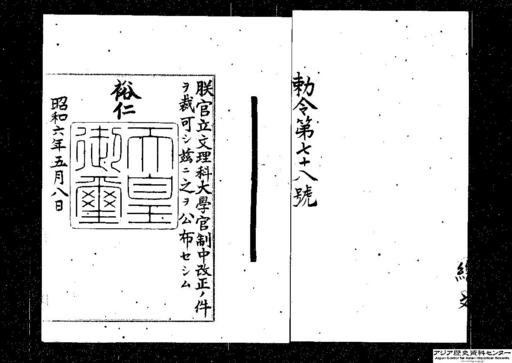 勅令第七十八號
朕官立文理科大學官制中改正ノ件
ヲ裁可シ玆ニ之ヲ公布セシム
裕仁
天皇
御璽
昭和六年五月八日
アジア歴史資料センター
Japan Center for Asian Historical Records